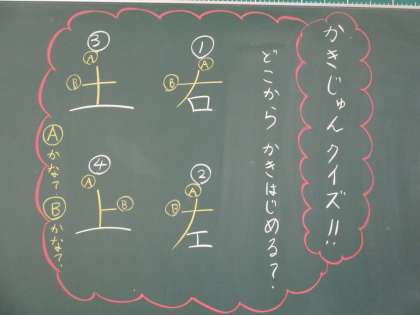 かきじゅんクイズ!!
どこから かきはじめる?
①
Ⓐ
Ⓑ
右
②
Ⓐ
Ⓑ
左
③
Ⓐ
Ⓑ
土
④
Ⓐ
Ⓑ
上
Ⓐかな? Ⓑかな?